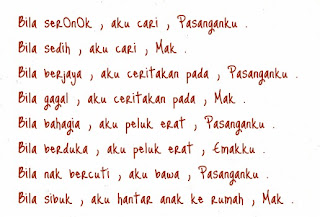 Bila serOnOk , aku cari , Pasanganku .
Bila sedih , aku cari , Mak .
Bila berjaya , aku ceritakan pada , Pasanganku .
Bila gagal , aku ceritakan pada , Mak .
Bila bahagia , aku peluk erat , Pasanganku .
Bila berduka , aku peluk erat , Emakku .
Bila nak bercuti , aku bawa , Pasanganku .
Bila sibuk , aku hantar anak ke rumah , Mak .